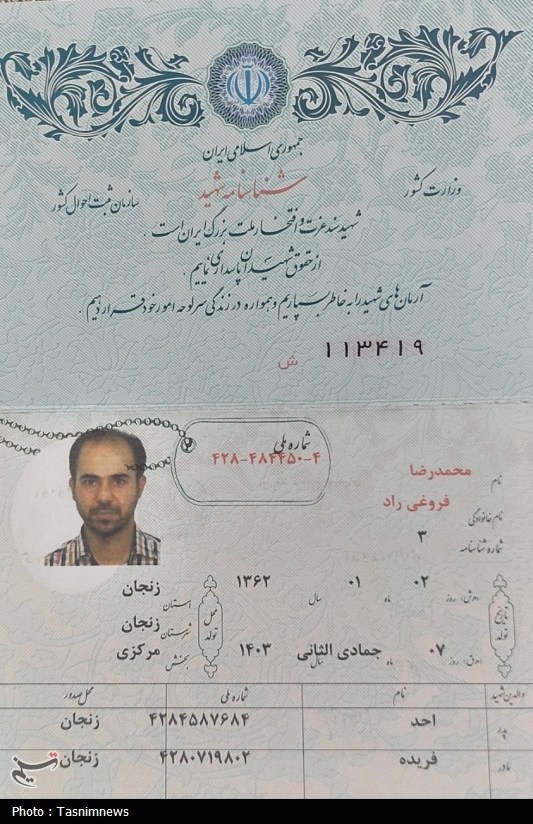 جمهوری اسلامی ایران
وزارت کشور
شناسنامه شهید
سازمان ثبت احوال کشور
شهید سند عزت و افتخار ملت بزرگ ایران است .
از حقوق شهیدان پاسداری نماییم .
آرمان‌های شهید را به خاطر بسپاریم و همواره در زندگی سرلوحه امور خود قرار دهیم .
۱۱۳۴۱۹ ش
شماره ملی
۴۲۸-۴۸۴۴۵۰-۴
نام محمدرضا
نام خانوادگی فروغی راد
شماره شناسنامه ۳
تاریخ تولد
روز ۰۲ ماه ۰۱ سال ۱۳۶۲
روز ۰۷ ماه جمادی الثانی سال ۱۴۰۳
محل تولد
استان زنجان
شهرستان زنجان
بخش مرکزی
والدین شهید نام شماره ملی محل صدور
پدر احد ۴۲۸۴۵۸۷۶۸۴ زنجان
مادر فریده ۴۲۸۰۷۱۹۸۰۲ زنجان
تسنیم
Photo : Tasnimnews